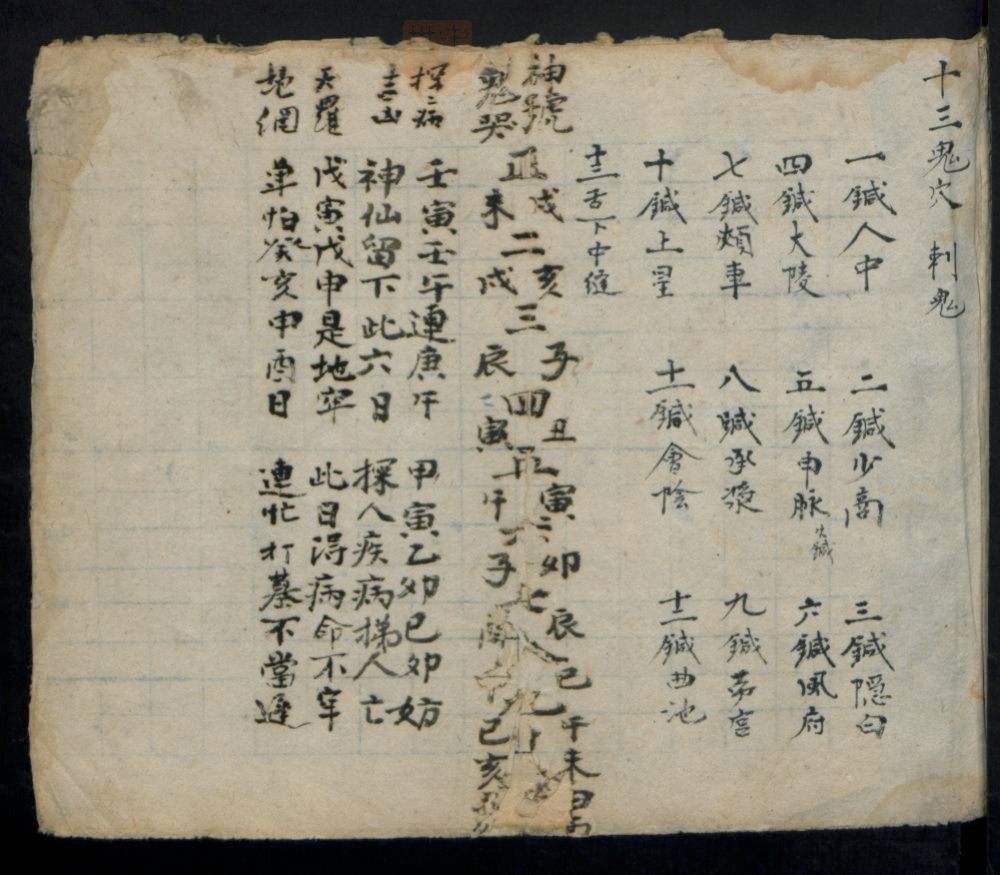 十三鬼穴 刺鬼
一鍼人中 二鍼少商 三鍼隠白
四鍼大陵 五鍼申脉 火鍼 六鍼風府
七鍼頰車 八鍼承漿 九鍼劳宫
十鍼上星 十一鍼會陰 十二鍼曲池
十三舌下中縫
神號 戌亥子丑寅卯辰巳午未
正二三四五六七八九十
鬼哭 未戌辰寅午子 巳亥
探病 壬寅壬午連庚午 甲寅乙卯巳卯妨
吉凶 神仙留下此六日 探人疾病㨹人亡
天羅 戊寅戊申是地牢 此日淂病命不牢
地網 单怕癸亥申酉日 連忙打墓不當遲